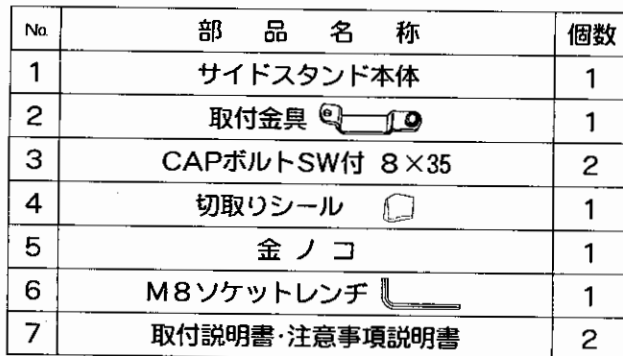 No. 部品名称 個数
1 サイドスタンド本体 1
2 取付金具 1
3 CAPボルトSW付 8×35 2
4 切取りシール 1
5 金ノコ 1
6 M8ソケットレンチ 1
7 取付説明書・注意事項説明書 2